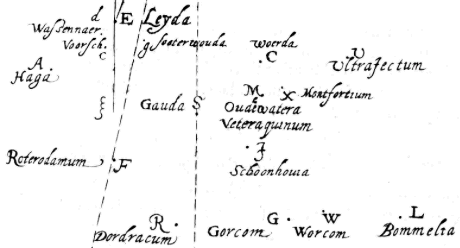 d E Leyda
Wassennaer.
Voorsch. g Soeterwouda Woerda
C C U
A Ultrajectum
Haga
M X Montfortium
Gauda S Oudewatera
Veteraquinum
Roterodamum F
J
Schoonhouia
R G W L
Dordracum Gorcom Worcom Bommelia